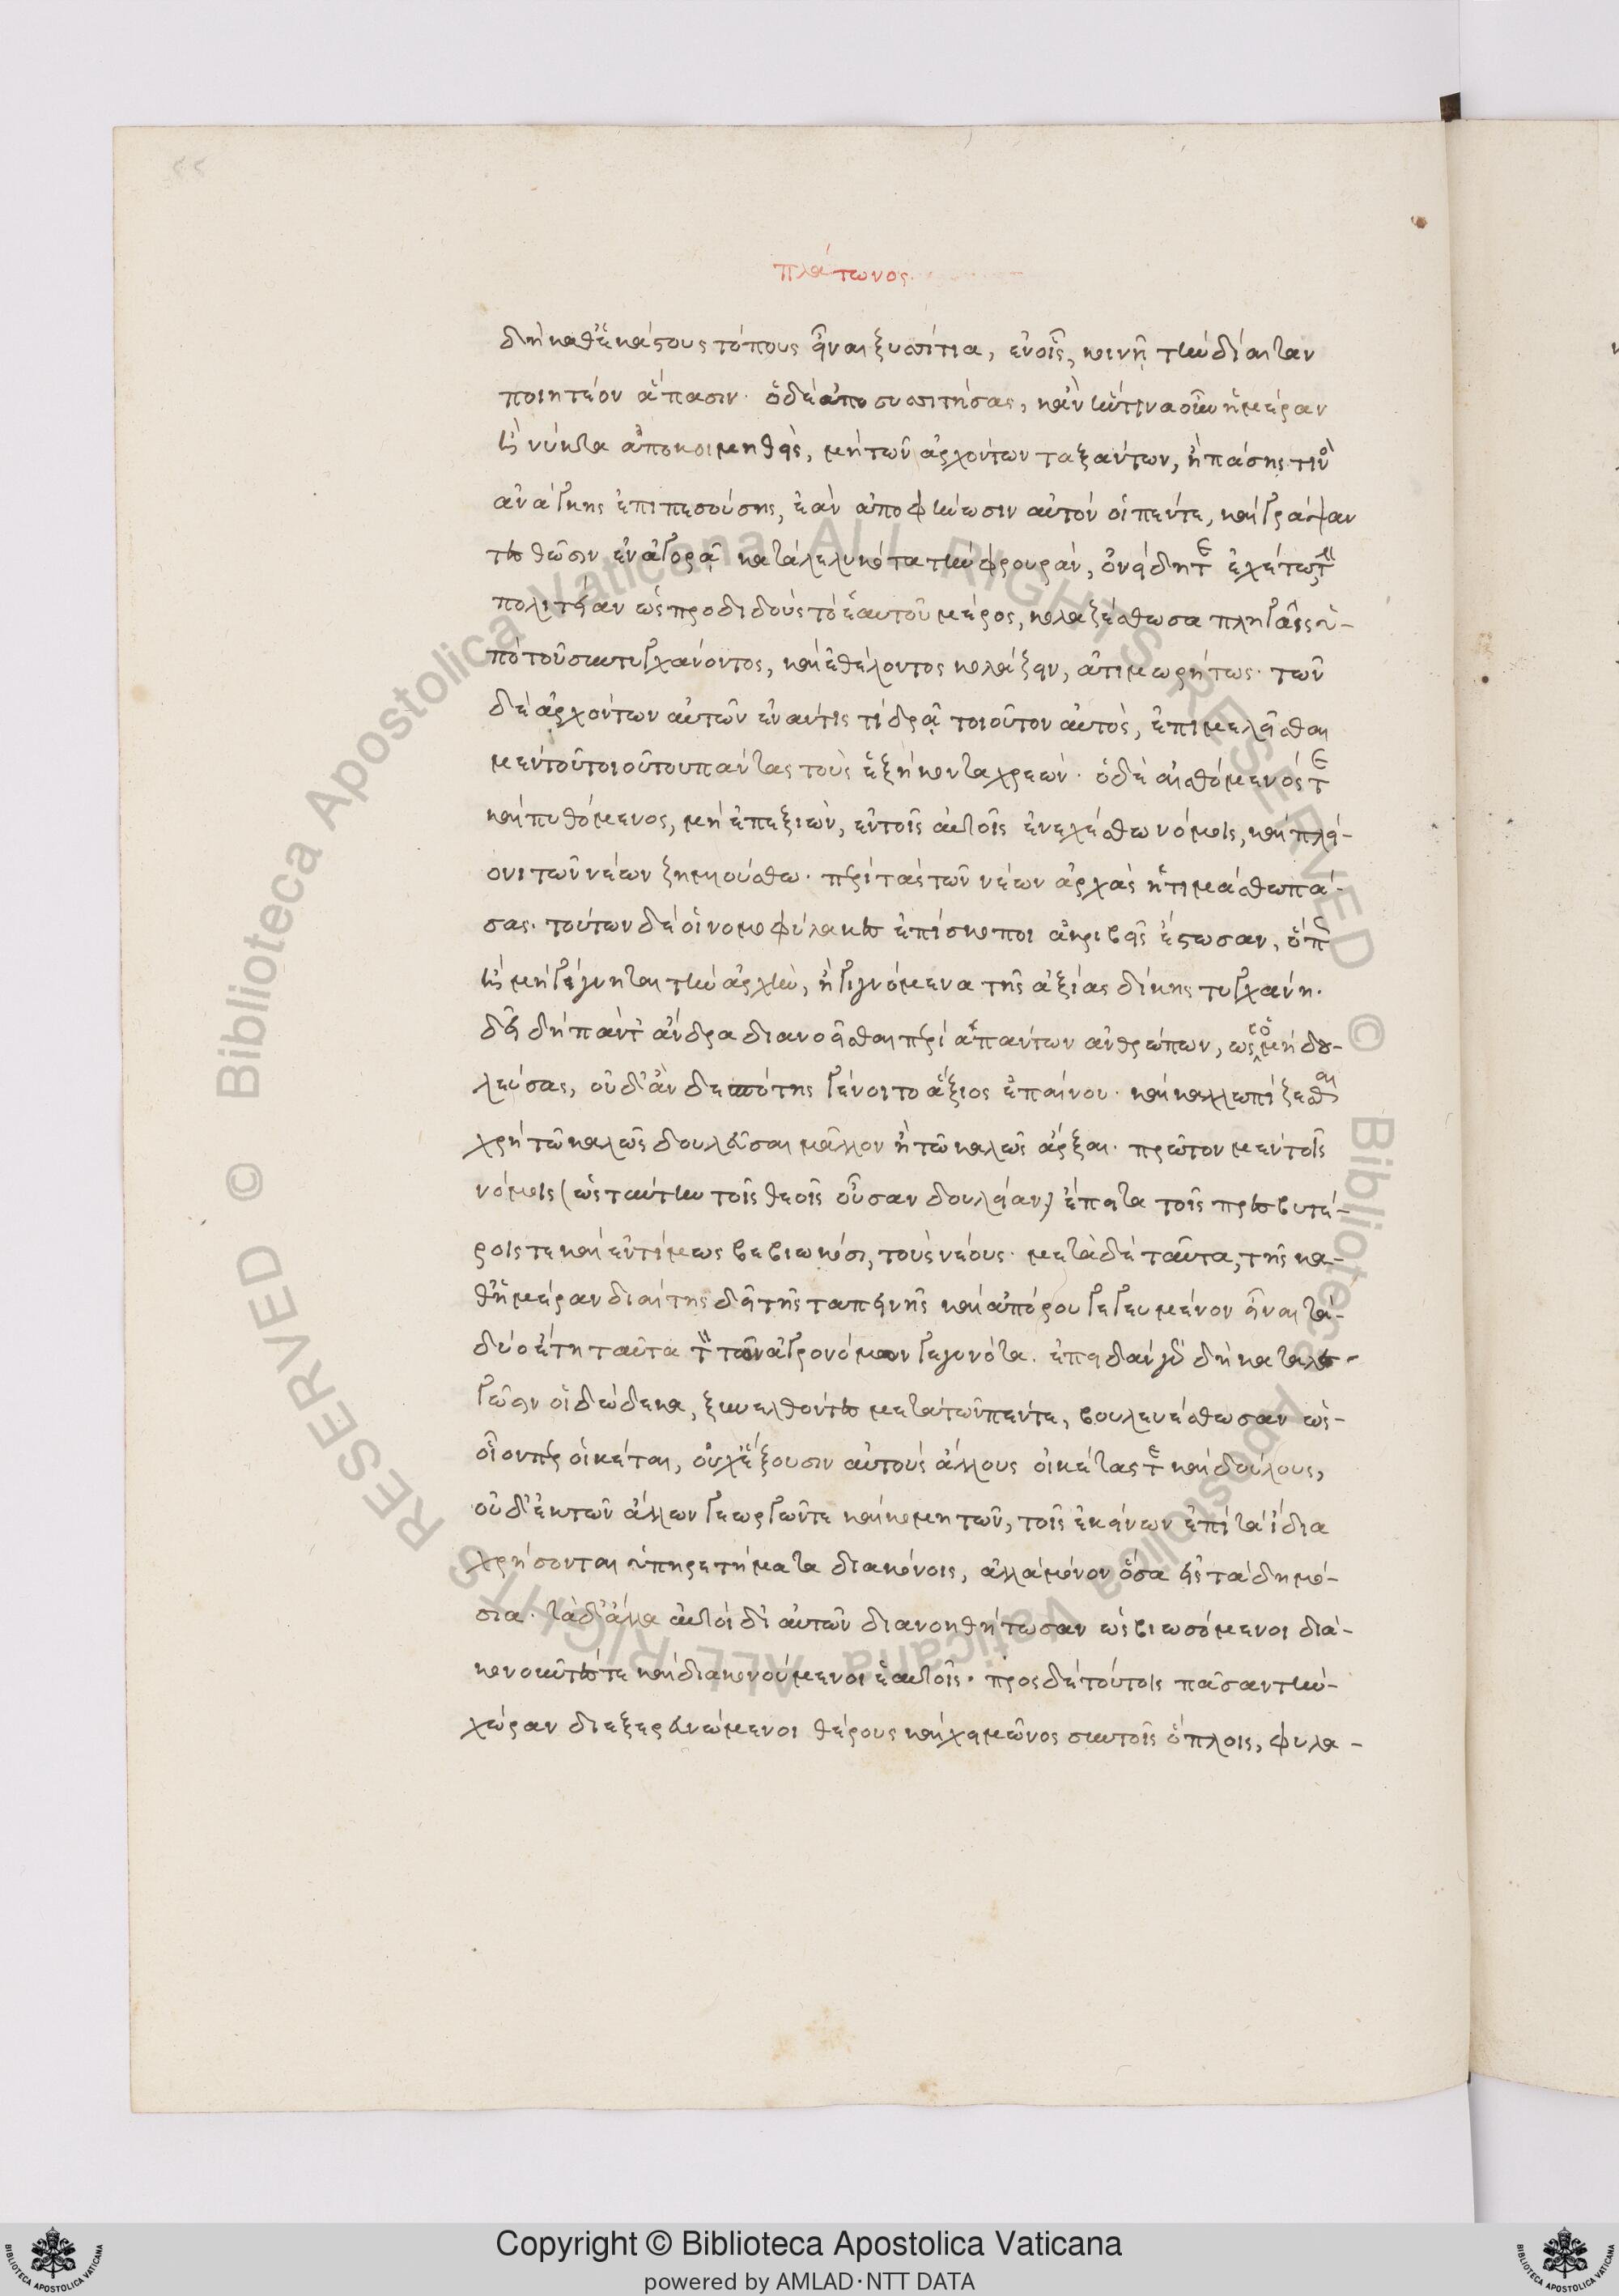 πλάτωνος
δὴ καθ' ἑκάστους τόπους εἶναι ξυσίτια, ἐν οἷς, κοινῇ τὴν δίαιταν
ποιητέον ἅπασιν· ὁ δὲ ἀποσυσιτήσας, κἂν ἡντιναοῦν ἡμέραν
ἢ νύκτα ἀποκοιμηθεὶς, μὴ τῶν ἀρχόντων ταξάντων, ἢ πάσης τινὸς
ἀνάγκης ἐπιπεσούσης, ἐὰν ἀποφήνωσιν αὐτὸν οἱ πέντε, καὶ γράψαν
τες θῶσιν ἐν ἀγορᾷ καταλελυκότα τὴν φρουρὰν, ὀνείδη τε ἐχέτω τὴν
πολιτείαν ὡς προδιδοὺς τὸ ἑαυτοῦ μέρος, κολαζέσθω σα πληγαῖς ὑ-
πὸ τοῦ συντυγχάνοντος, καὶ ἐθέλοντος κολάζειν, ἀτιμωρήτως· τῶν
δὲ ἀρχόντων αὐτῶν ἐὰν τίς τί δρᾷ τοιοῦτον αὐτὸς, ἐπιμελεῖσθαι
μὲν τοῦ τοιούτου πάντας τοὺς ἑξήκοντα χρεών· ὁ δὲ αἰσθόμενός τε
καὶ πυθόμενος, μὴ ἐπεξιὼν, ἐν τοῖς αὐτοῖς ἐνεχέσθω νόμοις, καὶ πλεί-
ονι τῶν νέων ζημιούσθω· περὶ τὰς τῶν νέων ἀρχὰς ἠτιμάσθω πά-
σας· τούτων δὲ οἱ νομοφύλακες ἐπίσκοποι ἀκριβεῖς ἔστωσαν, ὅπως
ἢ μὴ γίγνηται τὴν ἀρχὴν, ἢ γιγνόμενα τῆς ἀξίας δίκης τυγχάνῃ·
δεῖ δὴ πάντ' ἄνδρα διανοεῖσθαι περὶ ἁπάντων ἀνθρώπων, ὡς ὁ μὴ δου-
λεύσας, οὐδ' ἂν δεσπότης γένοιτο ἄξιος ἐπαίνου· καὶ καλλωπίζεσθαι
χρὴ τῷ καλῶς δουλεῦσαι μᾶλλον ἢ τῷ καλῶς ἄρξαι· πρῶτον μὲν τοῖς
νόμοις (ὡς ταύτην τοῖς θεοῖς οὖσαν δουλείαν) ἔπειτα τοῖς πρεσβυτέ-
ροις τε καὶ ἐντίμως βεβιωκόσι, τοὺς νέους· μετὰ δὲ ταῦτα, τῆς κα-
θ' ἡμέραν διαίτης δεῖ τῆς ταπεινῆς καὶ ἀπόρου γεγευμένον εἶναι τὰ-
δύο ἔτη ταῦτα τὸν τῶν ἀγρονόμων γεγονότα. ἐπειδὰν γὰρ δὴ καταλε-
γῶσιν οἱ δώδεκα, ξυνελθόντες μετὰ τῶν πέντε, βουλευέσθωσαν ὡς-
οἷον περ οἰκέται, οὐχ ἕξουσιν αὑτοῖς ἄλλους οἰκέτας τε καὶ δούλους,
οὐδ' ἐκ τῶν ἄλλων γεωργῶν τε καὶ κωμητῶν, τοῖς ἐκείνων ἐπὶ τὰ ἴδια
χρήσονται ὑπηρετήματα διακόνοις, ἀλλὰ μόνον ὅσα εἰς τὰ δημό-
σια· τὰ δ' ἄλλα αὐτοὶ δι' αὑτῶν διανοηθήτωσαν ὡς βιωσόμενοι διά-
κονοῦντές τε καὶ διακονούμενοι ἑαυτοῖς· πρὸς δὲ τούτοις πᾶσαν τὴν-
χώραν διεξερευνώμενοι θέρους καὶ χειμῶνος σὺν τοῖς ὅπλοις, φυλα-
Copyright © Biblioteca Apostolica Vaticana
powered by AMLAD·NTT DATA